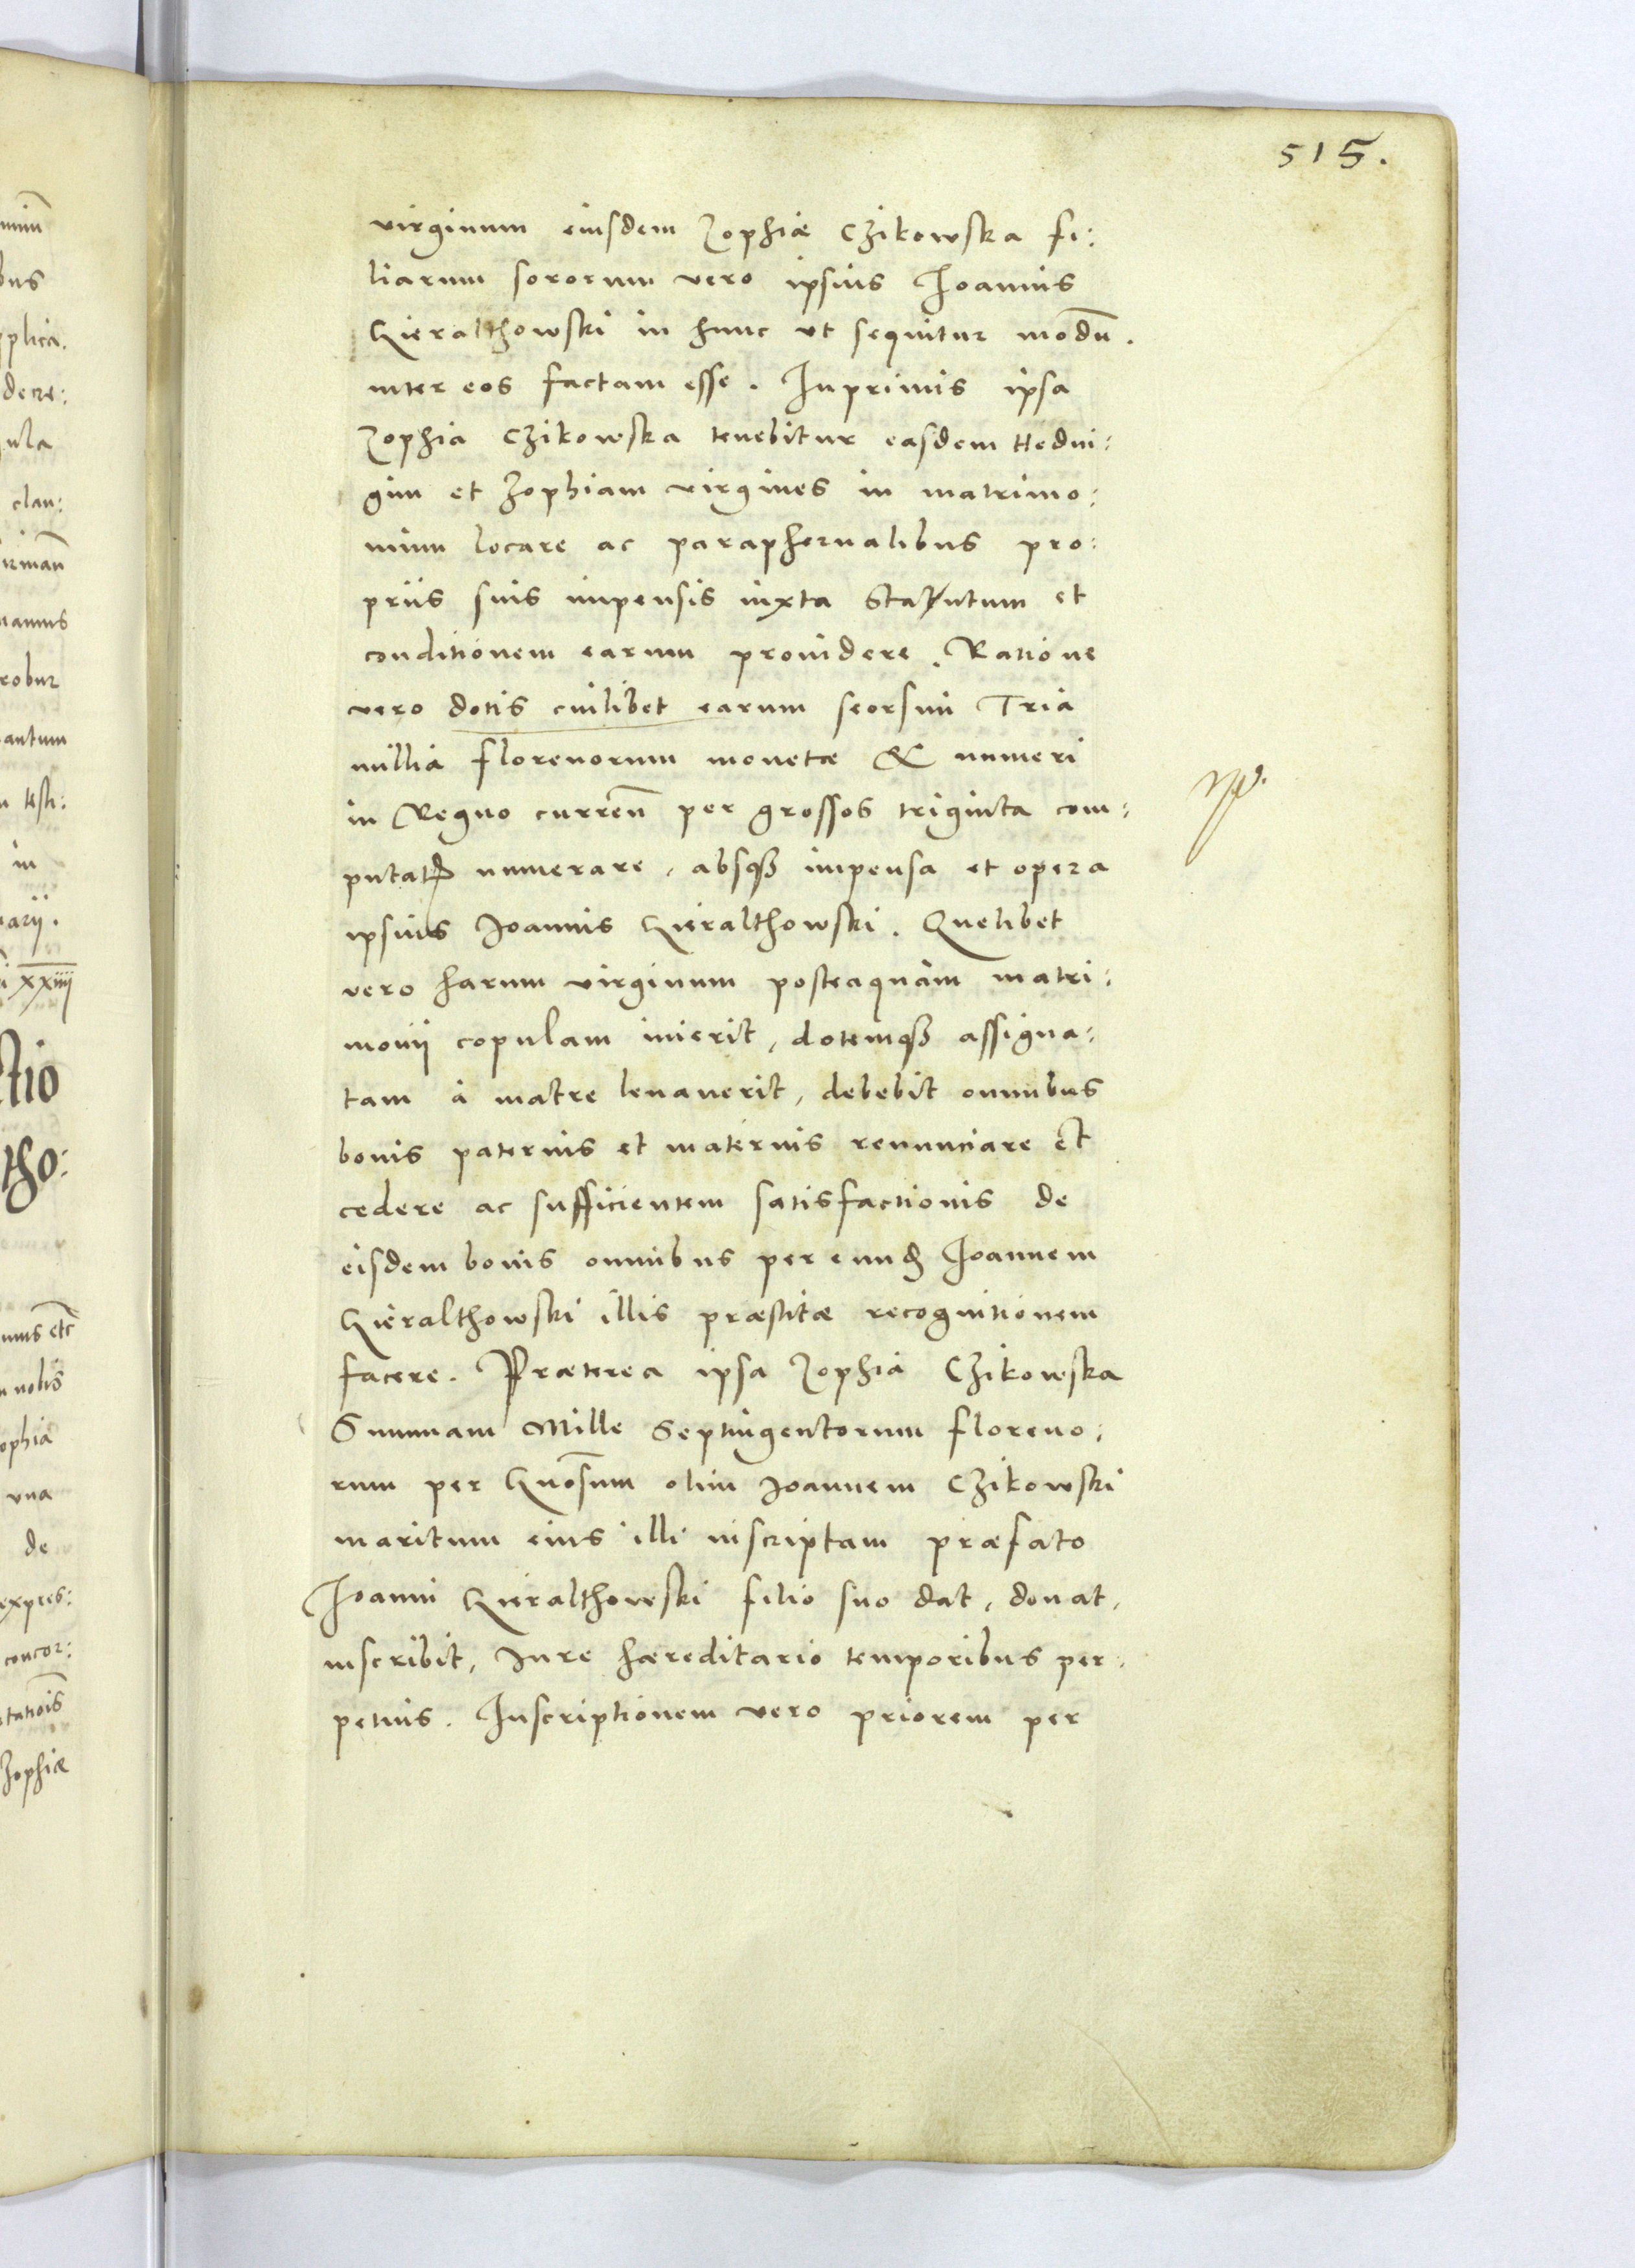 515.
virginum eiusdem Zophiæ Czikowska fi:
liarum sororum vero ipsius Ioannis
Gieralthowski in hunc ut sequitur modũ.
inter eos factam esse. Inprimis ipsa
Zophia Czikowska tenebitur easdem Hedui:
gim et Zophiam virgines in matrimo:
nium locare ac paraphernalibus pro:
priis suis impensis iuxta statutum et
conditionem earum prouidere. Ratione
vero dotis cuilibet earum seorsim Tria
millia florenorum monetæ & numeri
in Regno curren̄ per grossos triginta com:
putatꝭ numerare, absqȝ impensa et opera
ipsius Joannis Gieralthowski. Quelibet
vero harum virginum posteaquam matri:
monij copulam inierit, dotemqȝ assigna:
tam à matre leuauerit, debebit omnibus
bonis paternis et maternis renunciare et
cedere ac sufficientem satisfactionis de
eisdem bonis omnibus per eunđ Ioannem
Gieralthowski illis præstitæ recognitionem
facere. Præterea ipsa Zophia Czikowska
Summam Mille Septingentorum floreno:
rum per Gn̄osum olim Joannem Czikowski
maritum eius illi inscriptam præfato
Ioanni Gieralthowski filio suo dat, donat,
inscribit, Iure hæreditario temporibus per:
petuis. Inscriptionem vero priorem per